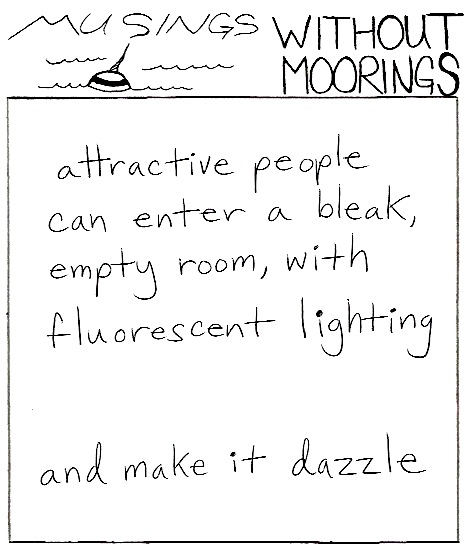 MUSINGS WITHOUT
MOORINGS
attractive people
can enter a bleak,
empty room, with
fluorescent lighting
and make it dazzle